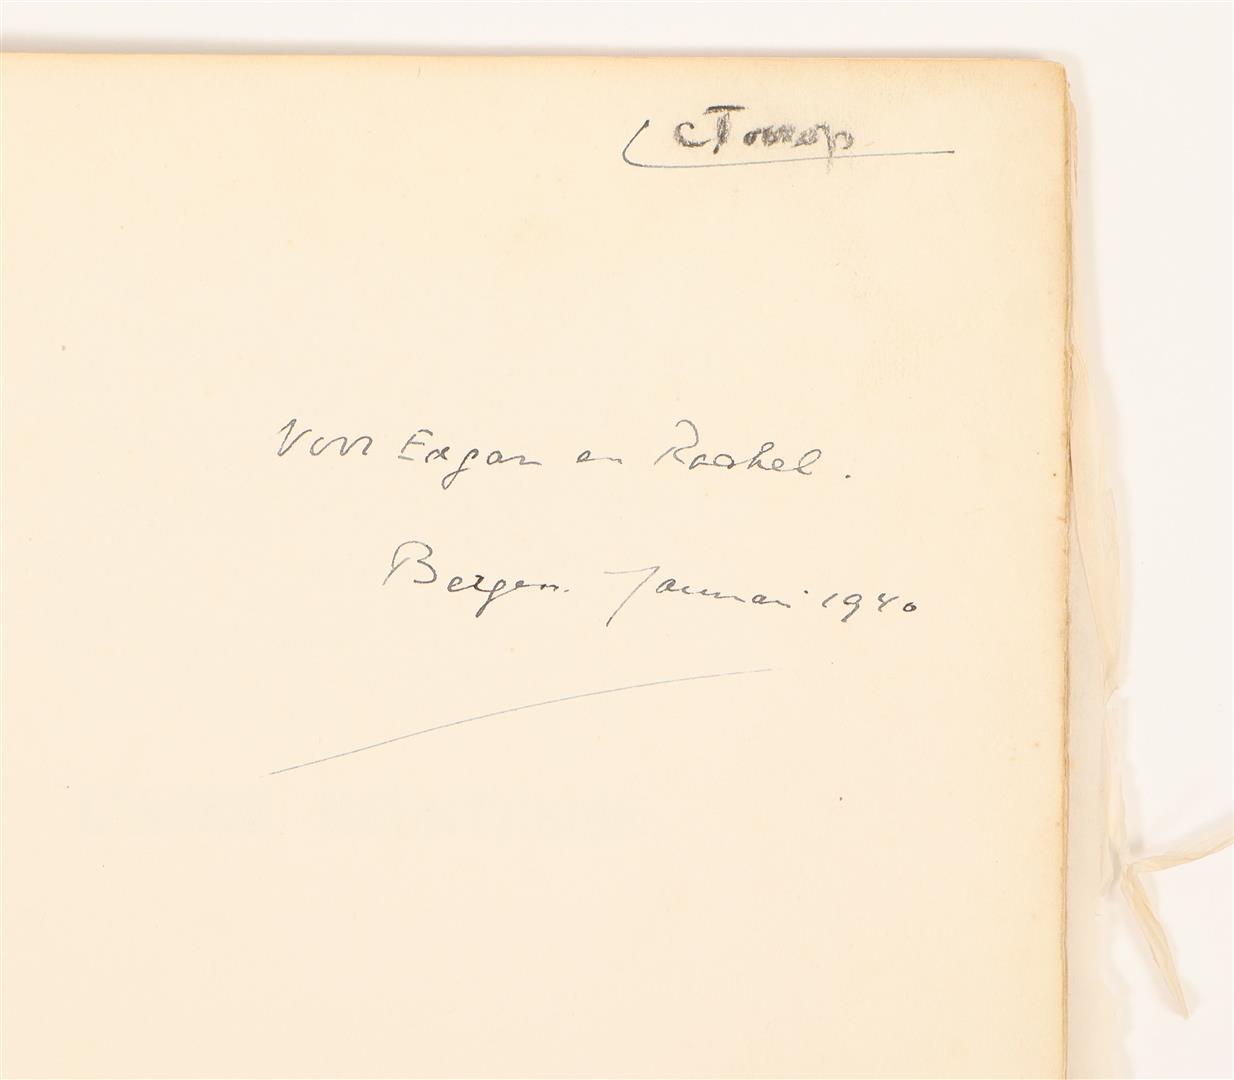 CToorop
Voor Edgar en Rachel.
Bergen. Januari 1940